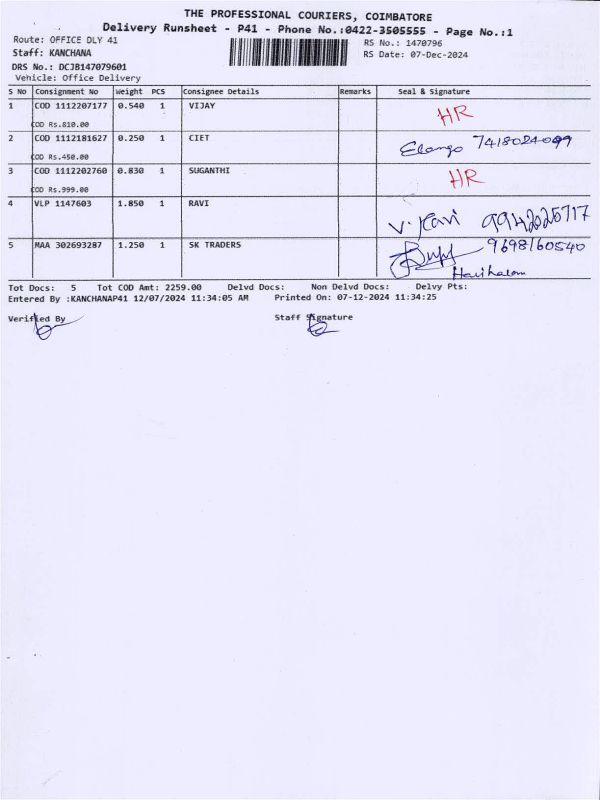 THE PROFESSIONAL COURIERS, COIMBATORE
Delivery Runsheet - P41 - Phone No.:0422-3505555 - Page No.:1
Route: OFFICE DLY 41
RS No.: 1470796
Staff: KANCHANA
RS Date: 07-Dec-2024
DRS No.: DCJB147079601
Vehicle: Office Delivery
S No Consignment No Weight PCS Consignee Details Remarks Seal & Signature
1 COD 1112207177 0.540 1 VIJAY HR
COD Rs.810.00
2 COD 1112181627 0.250 1 CIET Elango 7418024099
COD Rs.450.00
3 COD 1112202760 0.830 1 SUGANTHI HR
COD Rs.999.00
4 VLP 1147603 1.850 1 RAVI V. Ravi 9942025717
5 MAA 302693287 1.250 1 SK TRADERS 9698160540
Tot Docs: 5 Tot COD Amt: 2259.00 Delvd Docs: Non Delvd Docs: Delvy Pts:
Entered By :KANCHANAP41 12/07/2024 11:34:05 AM Printed On: 07-12-2024 11:34:25
Verified By Staff Signature